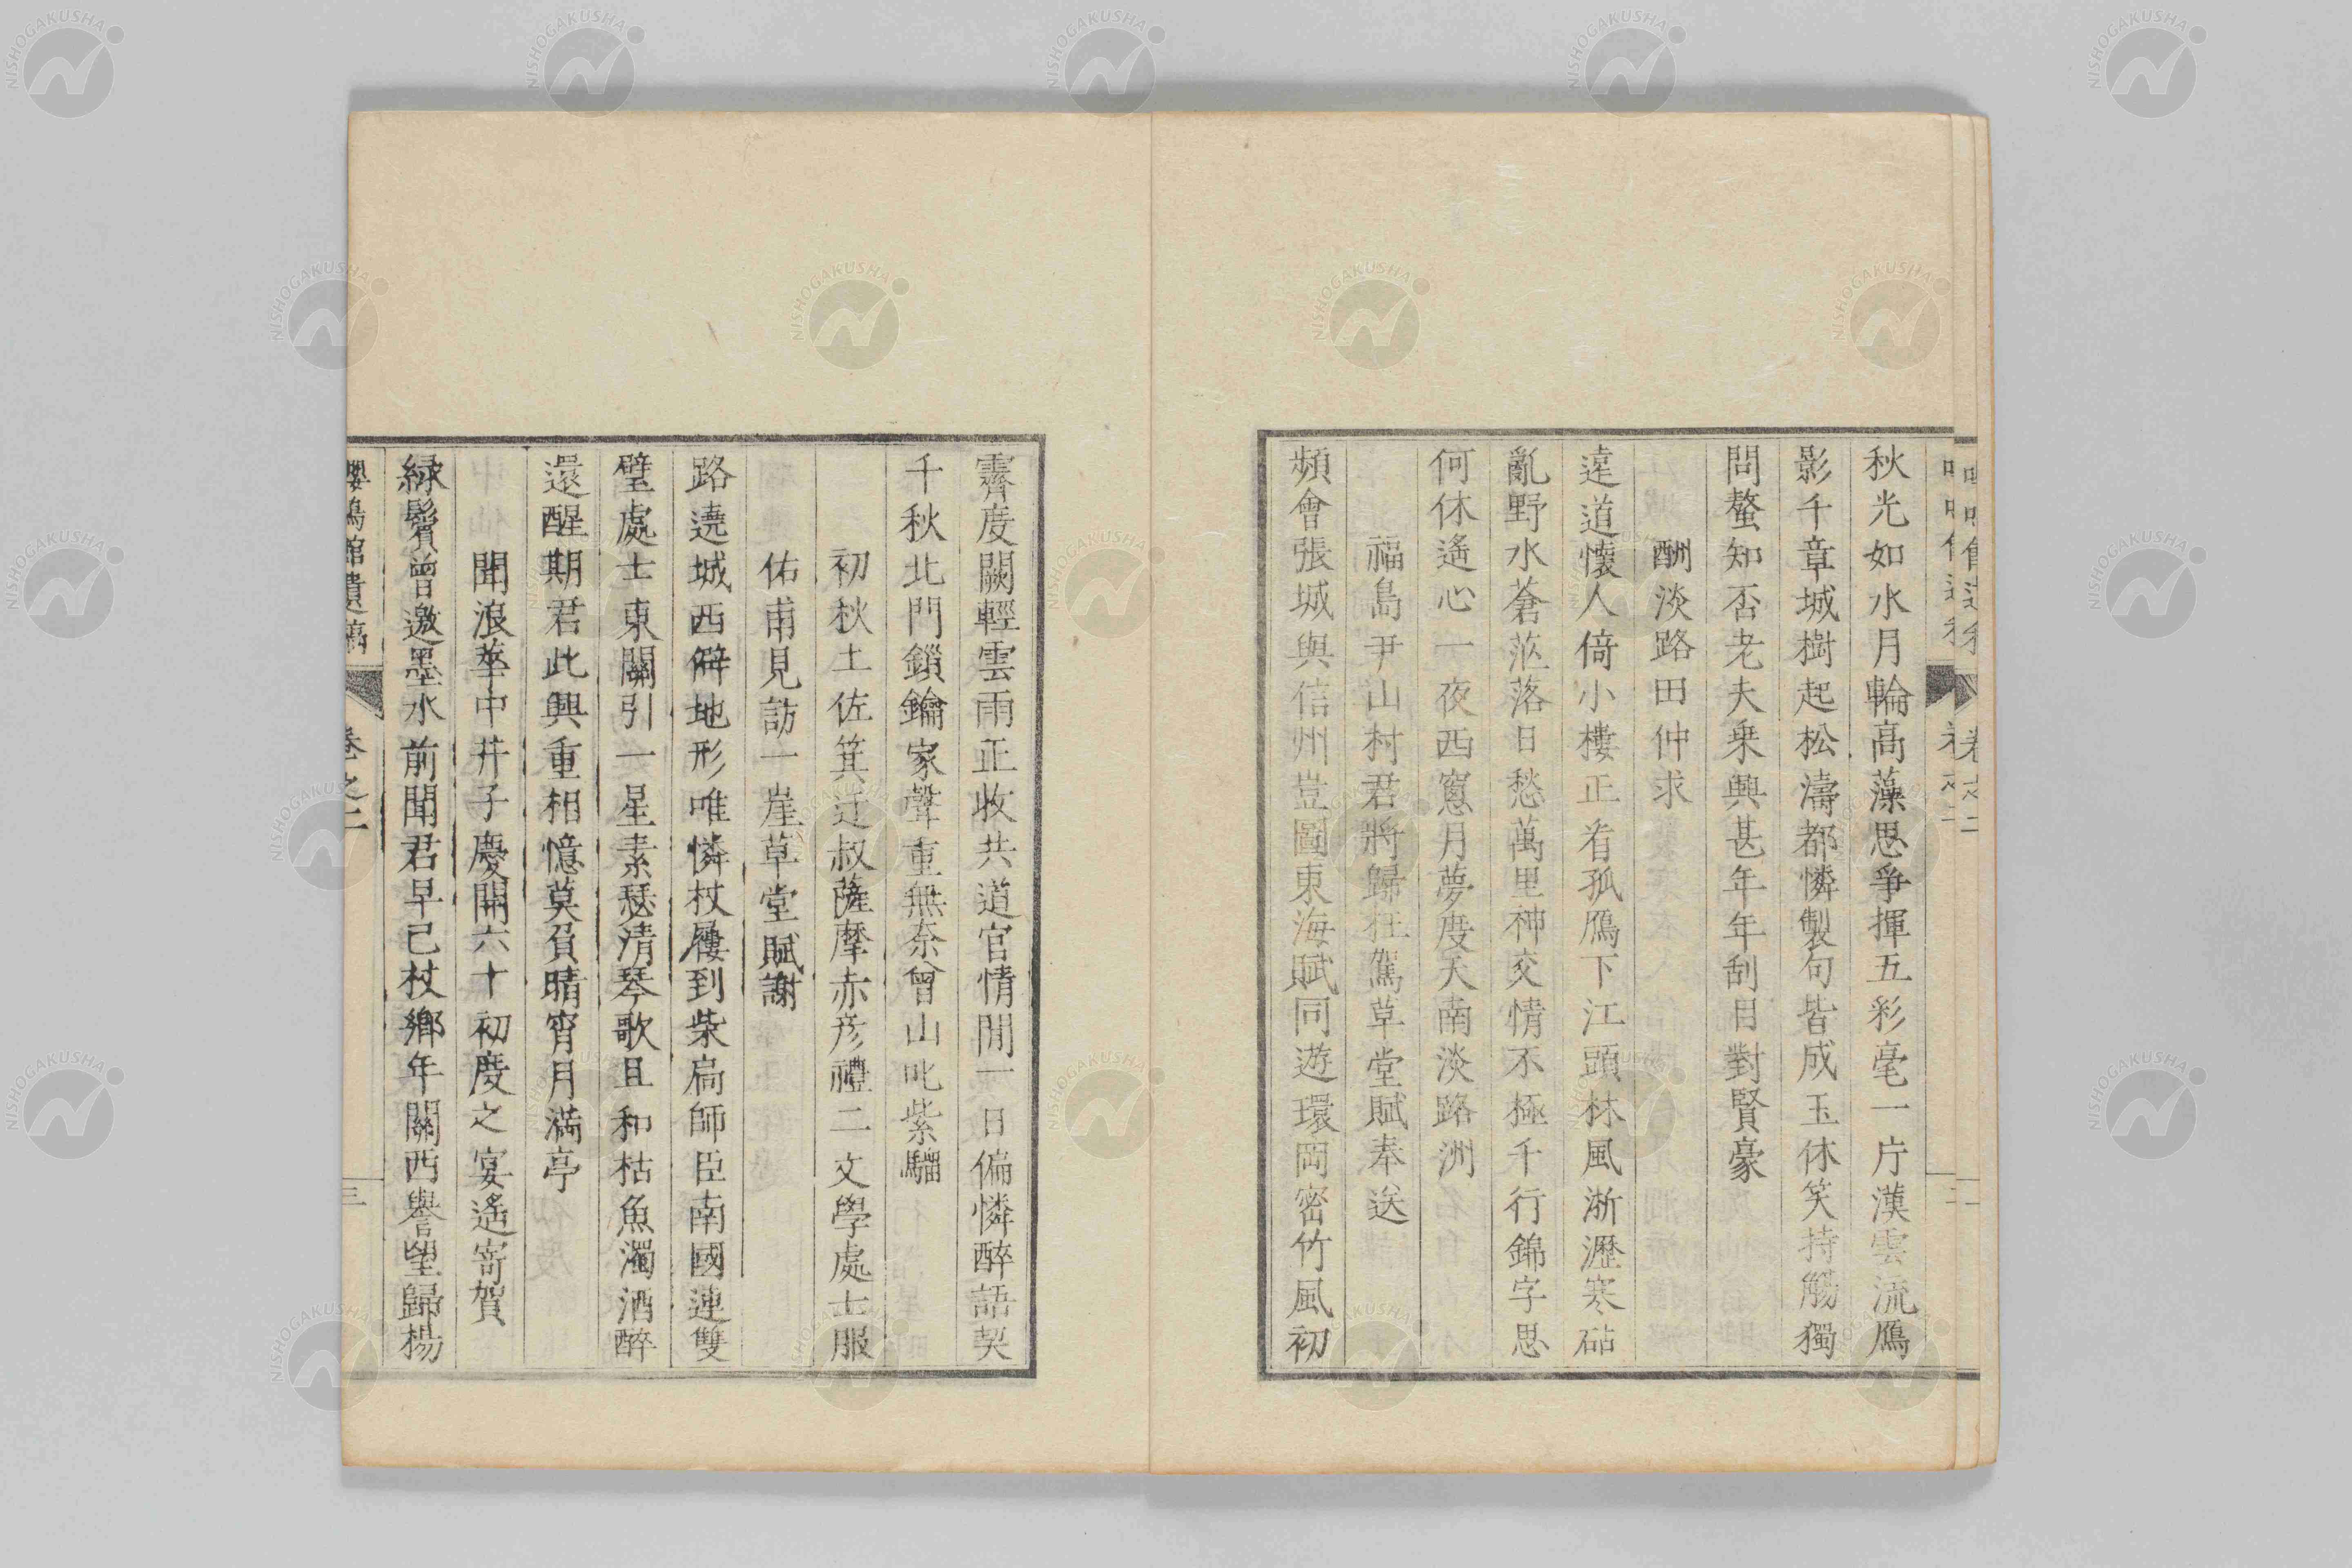 秋光如水月輪高藻思爭揮五彩毫一片漢雲流鴈
影千章城樹起松濤都憐製句皆成玉休笑持觴獨
問螯知否老夫乗興甚年年刮日對賢豪
酬淡路田仲求
遠道懷人倚小樓正看孤鴈下江頭林風淅瀝寒砧
亂野水蒼茫落日愁萬里神交情不極千行錦字思
何休遙心一夜西窻月夢度天南淡路洲
福島尹山村君將歸枉駕草堂賦奉送
頻會張城與信州豈圖東海賦同遊環岡密竹風初
霽度闕輕雲雨正收共道官情閒一日偏憐醉語契
千秋北門鎖鑰家聲重無奈曾山叱紫騮
初秋土佐箕迂叔薩摩赤彦禮二文學處士服
佑甫見訪一崖草堂賦謝
路遶城西僻地形唯憐杖屨到柴扃師臣南國連雙
璧處士東關引一星素瑟清琴歌且和枯魚濁酒醉
還醒期君此興重相憶莫負晴宵月満亭
聞浪華中井子慶開六十初度之宴遙寄賀
綠鬢曾邀墨水前聞君早已杖鄉年關西譽望歸楊
嚶鳴館遺稿 卷之二 三
NISHOGAKUSHA